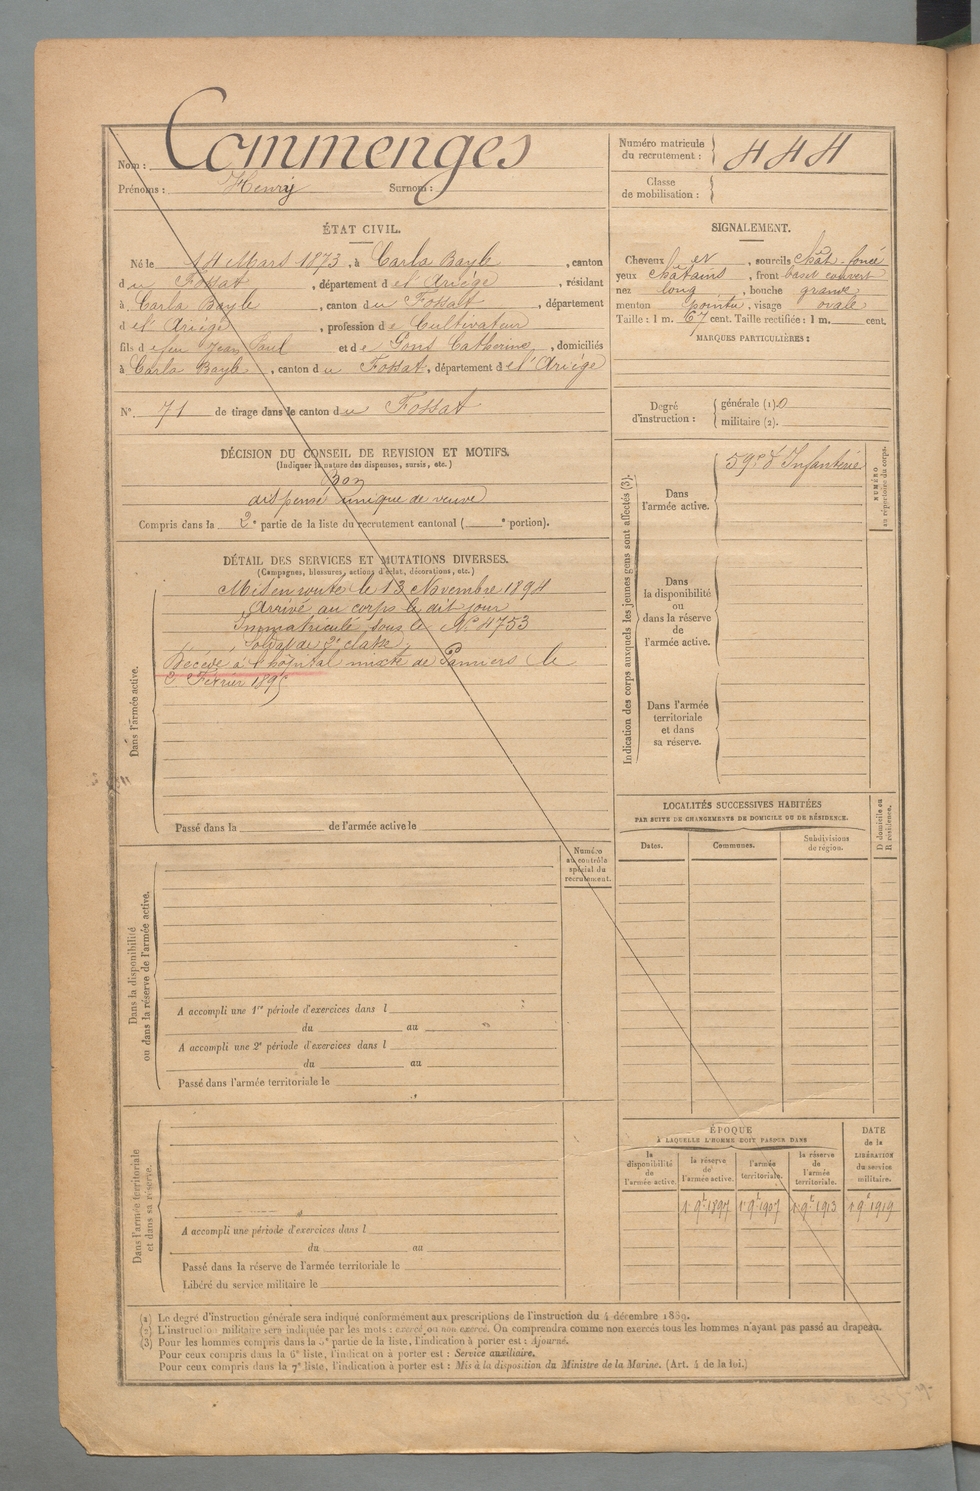 Nom : Commenges
Prénoms : Henry Surnom :
Numéro matricule du recrutement : 444
Classe de mobilisation :
ÉTAT CIVIL.
Né le 14 Mars 1873, à Carla Bayle, canton
du Fossat, département de l'Ariège, résidant
à Carla Bayle, canton du Fossat, département
de l'Ariège, profession de Cultivateur
fils de feu Jean Paul et de Gons Catherine, domiciliés
à Carla Bayle, canton du Fossat, département de l'Ariège
N° 71 de tirage dans le canton du Fossat
SIGNALEMENT.
Cheveux et, sourcils chât-foncé
yeux châtains, front bas et couvert
nez long, bouche grande
menton pointu, visage ovale
Taille : 1 m. 67 cent. Taille rectifiée : 1 m. cent.
MARQUES PARTICULIÈRES :
Degré d'instruction : générale (1). 0
militaire (2).
DÉCISION DU CONSEIL DE REVISION ET MOTIFS.
(Indiquer la nature des dispenses, sursis, etc.)
Bon
dispensé unique de veuve
Compris dans la 2e partie de la liste du recrutement cantonal ( e portion).
DÉTAIL DES SERVICES ET MUTATIONS DIVERSES.
(Campagnes, blessures, actions d'éclat, décorations, etc.)
Dans l'armée active.
Mis en route le 13 Novembre 1894
Arrivé au corps le dit jour
Immatriculé sous le N° 4753
Soldat de 2e classe
Décédé à l'hôpital mixte de Pamiers le
2 Février 1895
Passé dans la de l'armée active le
Indication des corps auxquels les jeunes gens sont affectés (3).
Dans l'armée active.
59e d'Infanterie
NUMÉRO au répertoire du corps.
Dans la disponibilité ou dans la réserve de l'armée active.
Dans l'armée territoriale et dans sa réserve.
LOCALITÉS SUCCESSIVES HABITÉES
PAR SUITE DE CHANGEMENTS DE DOMICILE OU DE RÉSIDENCE.
Dates. Communes. Subdivisions de région. D domicile ou R résidence.
Dans la disponibilité ou dans la réserve de l'armée active.
Numéro au contrôle spécial du recrutement.
A accompli une 1re période d'exercices dans l
du au
A accompli une 2e période d'exercices dans l
du au
Passé dans l'armée territoriale le
Dans l'armée territoriale et dans sa réserve.
A accompli une période d'exercices dans l
du au
Passé dans la réserve de l'armée territoriale le
Libéré du service militaire le
ÉPOQUE
À LAQUELLE L'HOMME DOIT PASSER DANS
la disponibilité de l'armée active.
la réserve de l'armée active.
l'armée territoriale.
la réserve de l'armée territoriale.
DATE de la LIBÉRATION du service militaire.
1 9t 1897 1 9t 1907 1 9t 1913 1 9t 1919
(1) Le degré d'instruction générale sera indiqué conformément aux prescriptions de l'instruction du 4 décembre 1889.
(2) L'instruction militaire sera indiquée par les mots : exercé ou non exercé. On comprendra comme non exercés tous les hommes n'ayant pas passé au drapeau.
(3) Pour les hommes compris dans la 5e partie de la liste, l'indication à porter est : Ajourné.
Pour ceux compris dans la 6e liste, l'indication à porter est : Service auxiliaire.
Pour ceux compris dans la 7e liste, l'indication à porter est : Mis à la disposition du Ministre de la Marine. (Art. 4 de la loi.)